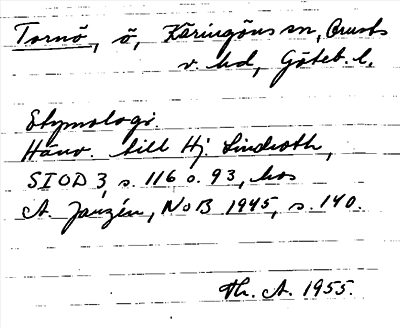 Tornö, ö, Käringöns sn, Orusts
v. hd, Göteb. l.
Etymologi.
Hänv. till Hj. Lindroth,
SIOD 3, s. 116 o. 93, hos
A. Janzén, NoB 1945, s. 140.
Th. A. 1955.